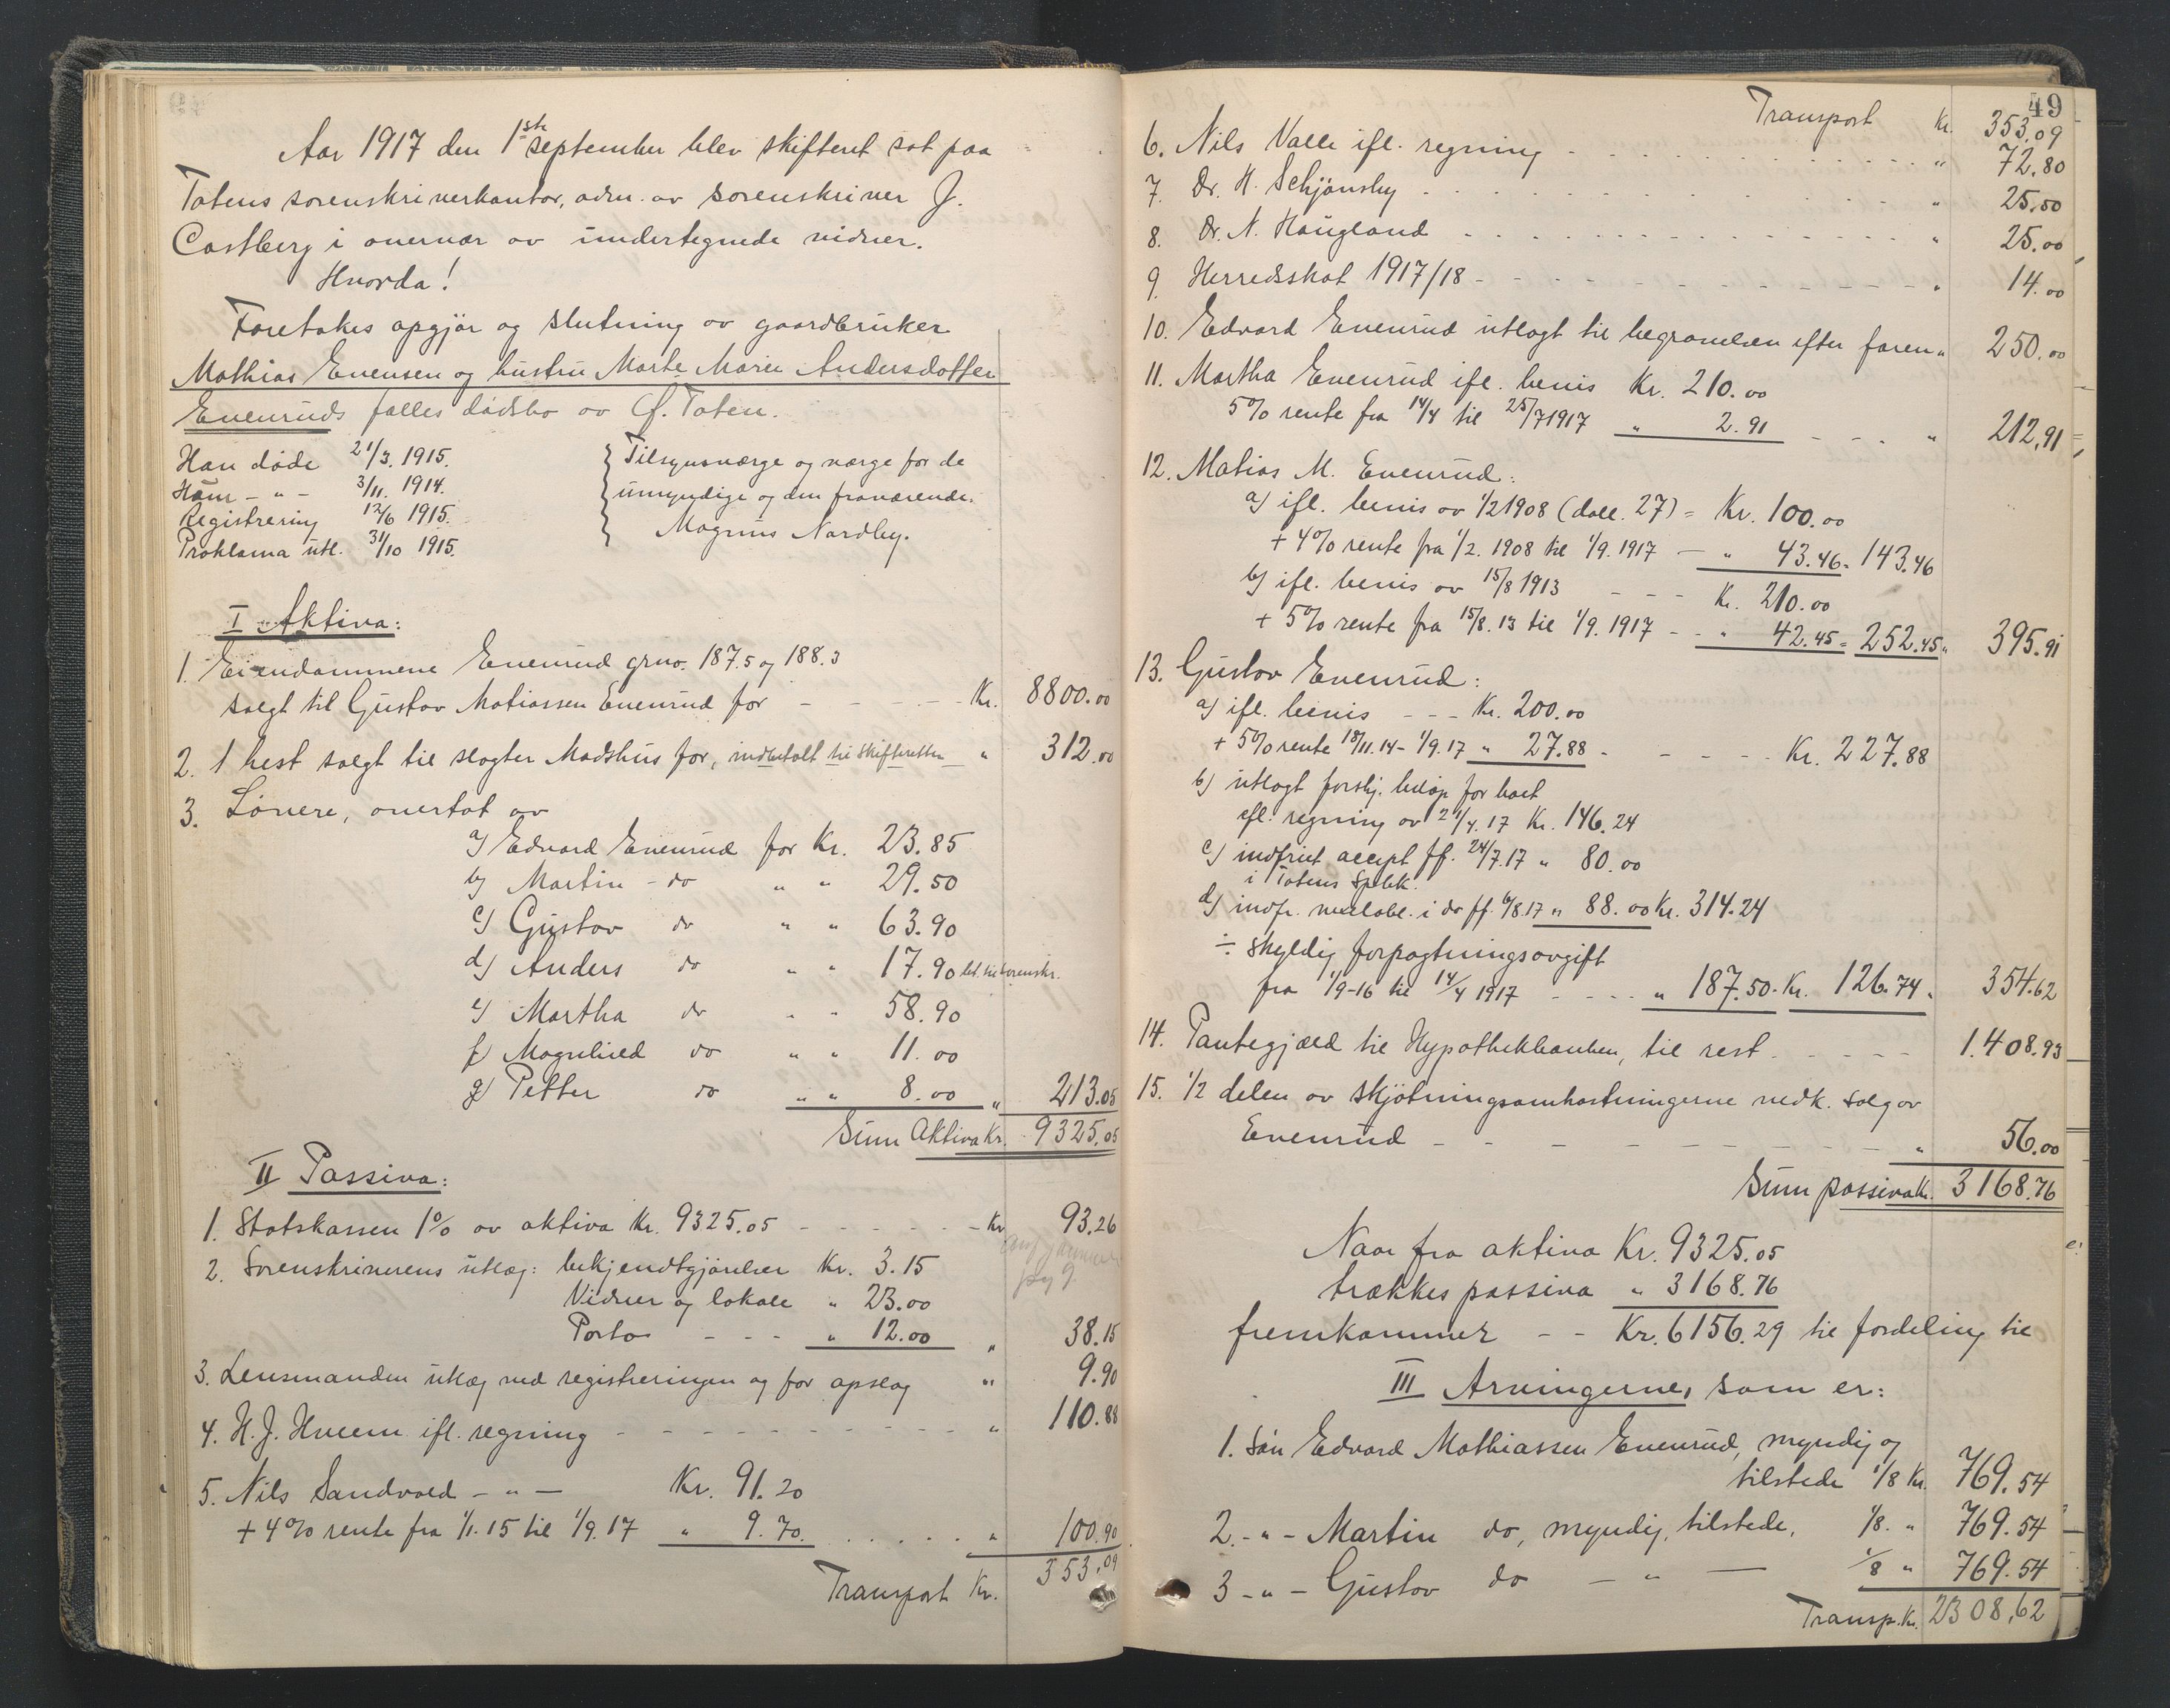 Aar 1917 den 1ste september blev skifteret sat paa
Totens sorenskriverkontor, adm. av sorenskriver J.
Castberg i overvær av undertegnede vidner.
Hvorda!
Foretokes opgjør og slutning av gaardbruker
Mathias Evensen og hustru Marte Marie Andersdatter
Evenruds fælles dødsbo av Ø. Toten.
Han døde 21/3. 1915.
Hun - " - 3/11. 1914.
Registrering 12/6 1915.
Proklama utl. 31/10 1915.
Tilsynsværge og værge for de
umyndige og den fraværende:
Magnus Nordby.
I Aktiva:
1. Eiendommene Evenrud grno. 187.5 og 188.3
solgt til Gustav Matiassen Evenrud for - - - - - Kr. 8800.00
2. 1 hest solgt til slagter Madshus for, indbetalt til skifteretten " 312.00
3. Løsøre, overtat av
a) Edvard Evenrud for Kr. 23.85
b) Martin - do " " 29.50
c) Gustav do " " 63.90
d) Anders do " " 17.90 bet. til sorenskr.
e) Martha do " " 58.90
f) Magnhild do " " 11.00
g) Petter do " " 8.00 " 213.05
Sum Aktiva Kr. 9325.05
II Passiva:
1. Statskassen 1% av aktiva Kr. 9325.05 - - - - - - Kr 93.26
2. Sorenskriverens utlæg: bekjendtgjørelser Kr. 3.15
pag 9
Vidner og lokale " 23.00
Porto - - - " 12.00 " 38.15
3. Lensmanden utlæg ved registreringen og for opslag " 9.90
4. H. J. Hveem ifl. regning - - - - - - - - - - " 110.88
5. Nils Sandvold - " - Kr. 91.20
+ 4% rente fra 1/1. 15 til 1/9. 17 " 9.70. . . . . . " 100.90
Transport Kr. 353.09
49
Transport Kr. 353.09
6. Nils Valle ifl. regning - . . . . . . . . . . . " 72.80
7. Dr. H. Schjønsby . . . . . . . . . . " 25.50
8. Dr. N. Haugland . . . . . . . . . . " 25.00
9. Herredsskat 1917/18 - - - - - - - - - - - " 14.00
10. Edvard Evenrud utlagt til begravelsen efter faren " 250.00
11. Martha Evenrud ifl. bevis Kr. 210.00
5% rente fra 14/4 til 25/7 1917 " 2.91 - - . " 212.91
12. Matias M. Evenrud:
a) ifl. bevis av 1/2 1908 (doll. 27) = Kr. 100.00
+ 4% rente fra 1/2. 1908 til 1/9. 1917 - " 43.46 = 143.46
b) ifl. bevis av 15/8 1913 - - - Kr. 210.00
+ 5% rente fra 15/8. 13 til 1/9. 1917 - - " 42.45 = 252.45 " 395.91
13. Gustav Evenrud:
a) ifl. bevis - - - Kr. 200.00
+ 5% rente 18/11. 14 - 1/9. 17 " 27.88 - - - - - Kr. 227.88
b) utlagt forskj. beløp for boet
ifl. regning av 21/4. 17 Kr. 146.24
c) indfriet accept ff. 24/7. 17 " 80.00
i Totens Spbk.
d) indfr. vexelobl. i do ff. 6/8. 17 " 88.00 Kr. 314.24
÷ skyldig forpagtningsavgift
fra 1/9-16 til 14/4 1917 - - - - " 187.50. Kr. 126.74 " 354.62
14. Pantegjæld til Hypothekbanken, til rest . - - - - 1.408.93
15. 1/2 delen av skjøtningsomkostningerne vedk. salg av
Evenrud - - - - - - - - - " 56.00
Sum passiva Kr. 3168.76
Naar fra aktiva Kr. 9325.05
trækkes passiva " 3168.76
fremkommer - - Kr. 6156.29 til fordeling til
III Arvingerne, som er:
1. Søn Edvard Mathiassen Evenrud, myndig og
tilstede 1/8 Kr. 769.54
2. - " - Martin do, myndig, tilstede, 1/8. " 769.54
3 - " - Gustav do - " - 1/8 " 769.54
Transp. Kr. 2308,62